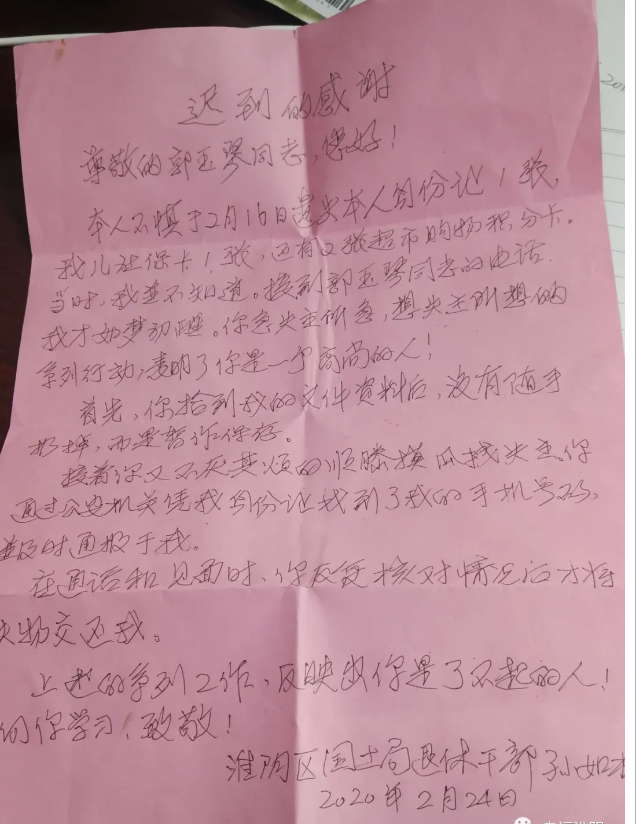 迟到的感谢
尊敬的郭玉琴同志,您好!
本人不慎于2月16日遗失本人身份证1张,
我儿社保卡1张,还有2张超市购物积分卡。
当时,我并不知道。接到郭玉琴同志的电话.
我才如梦初醒。你急失主所急,想失主所想的
系列行动,表明了你是一个高尚的人!
首先,你拾到我的文件资料后,没有随手
扔掉,而是暂作保存。
接着你又不厌其烦的顺藤摸瓜找失主。你
通过公安机关凭我身份证找到了我的手机号码,
并及时通报于我。
在通话和见面时、你反复核对情况后才将
失物交还我。
上述的系列工作、反映出你是了不起的人!
向你学习,致敬!
淮阴区国土局退休干部孙如
2020年2月24日
201